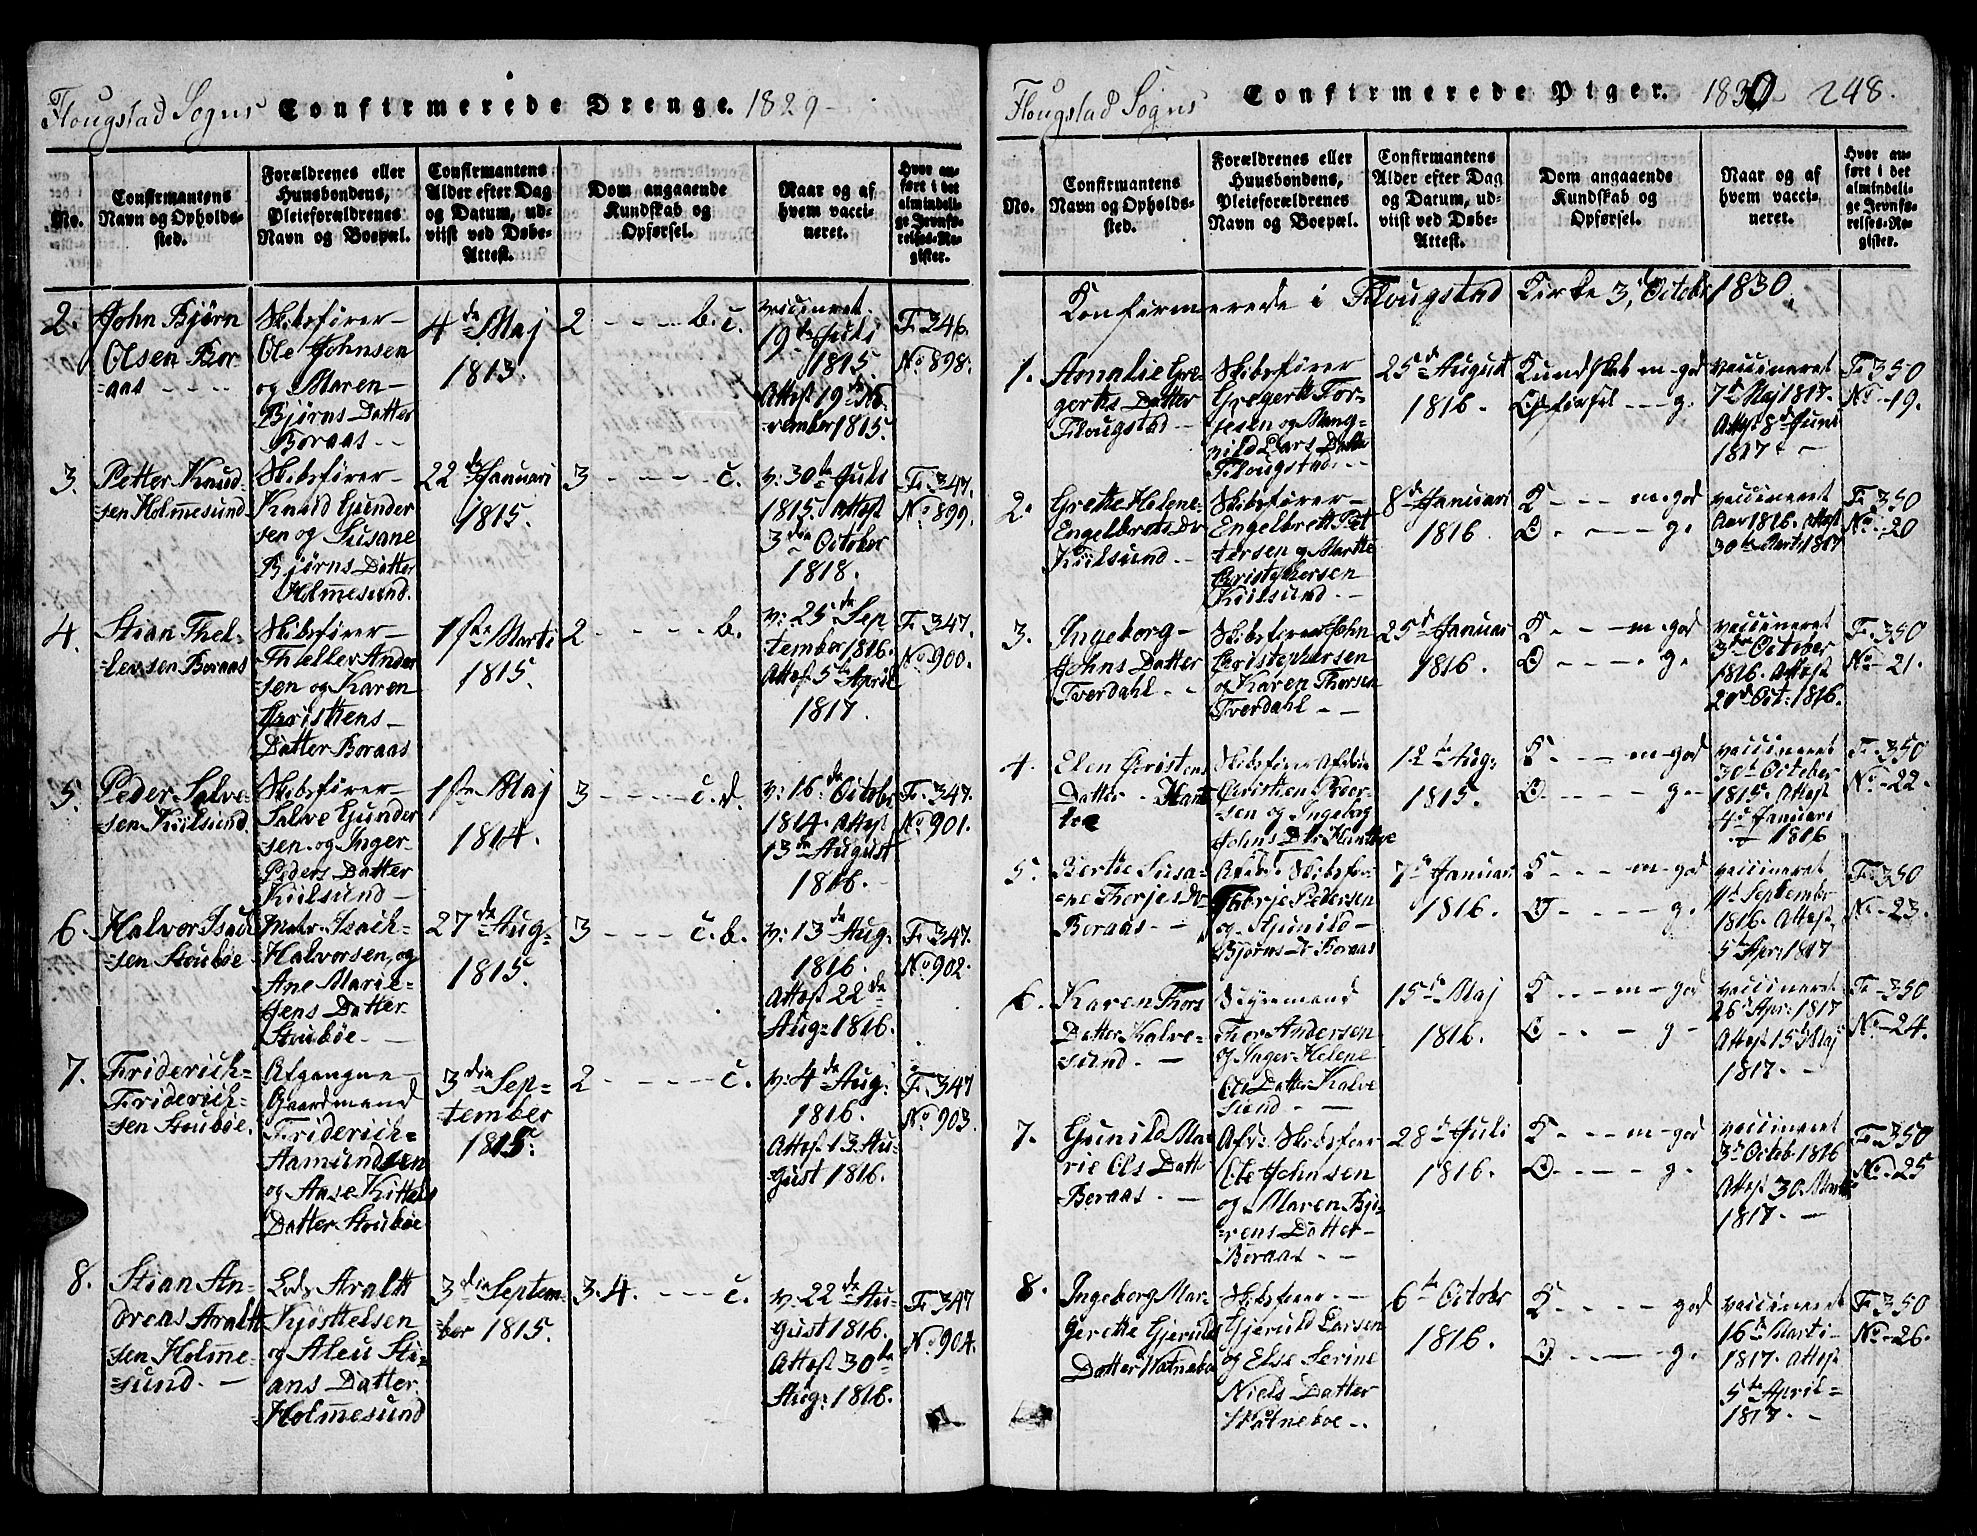 Flougstad Sogns Confirmerede Drenge. 1829-
No.
Confirmantens
Navn og Opholds-
sted.
Forældrenes eller
Huusbondens,
Pleieforældrenes
Navn og Boepæl.
Confirmantens
Alder efter Dag
og Datum, ud-
viist ved Døbe-
Attest.
Dom angaaende
Kundskab og
Opførsel.
Naar og af
hvem vacci-
neret.
Hvor an-
ført i det
almindeli-
ge Jevnfø-
relses-Re-
gister.
2.
John Bjørn
Olsen Bor-
=aas - - - -
Skibsfører-
Ole Johnsen
og Maren-
Bjørns Datter
Boraas - -
4de Maj
1813.
2 - - - - b. c.
vaccineret
19de Juli
1815.
Attest 19de No-
=vember 1815.
F. 346.
No 898.
3.
Petter Knud-
=sen Holmesund
Skibsfører-
Knud Gunder
sen og Susane
Bjørns Datter
Holmesund.
22de Januari
1815.
3 - - - - c.
v: 30de Juli
1815. Attest
3die October
1818.
F. 347.
No 899.
4.
Stian Thel-
=lefsen Boraas
Skibsfører-
Theller Ander
sen og Karen
Christens-
Datter Boraas
1ste Marti
1815.
2 - - - - b.
v: 25de Sep
tember 1816.
Attest 5te April
1817.
F. 347.
No 900.
5.
Peder Salve-
=sen Kiilsund
Skibsfører-
Salve Gunder
sen og Inger-
Peders Datter
Kiilsund-
1ste Maj
1814.
3 - - - - c. d.
v: 16de Octobr
1814. Attest
13de August
1816.
F. 347.
No 901.
6.
Halvor Isach
=sen Stoubøe
Matr. Isach-
Halvorsen, og
Ane Marie-
Jens Datter-
Stoubøe.
27de Aug=
1815.
3 - - - c. b.
v: 13de Aug:
1816.
Attest 22de
Aug: 1816.
F. 347.
No 902.
7.
Friderich=
Friderich=
sen Stoubøe.
Afgangne-
Gaardmand
Friderich=
Aamundsen
og Aase Kittels
Datter Stoubøe
3die Sep=
=tember
1815.
2 - - - - c.
v: 4de Aug:
1816.
Attest 13 Au-
gust 1816.
F. 347
No 903.
8.
Stian An-
dreas Araltt
sen Holme-
=sund. -
Lods Araltt
Kjøttelsen
og Aleu Sti-
ans Datter
Holmesund
3die Septem-
=ber 1815.
3.4. - - - c.
v: 22de Au-
gust 1816.
Attest 30te
Aug: 1816.
F. 347
No 904.
Flougstad Sogns Confirmerede Piger. 1830 248.
No.
Confirmantens
Navn og Opholds-
sted.
Forældrenes eller
Huusbondens,
Pleieforældrenes
Navn og Boepæl.
Confirmantens
Alder efter Dag
og Datum, ud-
viist ved Døbe-
Attest.
Dom angaaende
Kundskab og
Opførsel.
Naar og af
hvem vacci-
neret.
Hvor an-
ført i det
almindeli-
ge Jevnfø-
relses-Re-
gister.
Konfirmerede i Flougstad Kirke 3de Octobr 1830.
1.
Amalie Gre-
gerts Datter
Flougstad-
Skibsfører
Gregertt Tor-
jesen og Mang-
nild Lars Datter
Flougstad. - -
25de August
1816.
Kundskab m-god
Opførsel - - g.
vaccineret
7de Maj 1817.
Attest 8de Juni
1817. -
F. 350
No. 19.
2.
Grethe Helene
Engelbrets Dr
Kiilsund. -
Skibsfører-
Engelbrett Pet
tersen og Marthe
Christophersen
Kiilsund. -
8de Januari
1816.
K - - - m-god
O - - - - g.
vaccineret
Aar 1816. Attest
30te Marti 1817
F. 350
No. 20
3.
Ingeborg-
Johns Datter
Tverdahl. -
Skibsfører John
Christophersen
og Karen Thorsen
Tverdahl - -
25de Januar
1816.
K - - - m-god
O - - - - g.
vaccineret
3die October
1816. Attest
20de Oct: 1816.
F. 350
No. 21.
4.
Elen Christens
Datter - Hant
toe
Skibsfører Afdøde
Christien Roer-
sen og Ingebog
Johns Dtr Hanttoe
12te Aug:
1815.
K - - - m-god
O - - - - g-
vaccineret
30te October
1815. Attest
4de Januari
1816
F. 350
No. 22.
5.
Berthe Susa-
ne Thorjes Dr
Boraas. -
Afdød Skibsfø-
Thorje Pedersen
og Gunild-
Bjørns Dr Boraas
7de Januari
1816.
K - - - m-god
O - - - - g.
vaccineret
4de Septembr
1816. Attest
5te Apr: 1817
F. 350
No. 23.
6.
Karen Thors
Datter Kalve-
=sund. -
Styrmand
Thor Andersen
og Inger Helene
Ols Datter Kalve
sund - -
15de Maj
1816.
K - - - m-god
O - - - g -
vaccineret
26de Apr: 1817
Attest 15de Maj
1817. -
F. 350
No. 24.
7.
Gunild Ma-
rie Ols Datt
Boraas. -
Afd. Skibsfører
Ole Johnsen
og Maren Bjø-
=rens Datter-
Boraas - -
28de Juli
1816.
K - - - m-god
O - - - - g.
vaccineret
3de Octob 1816
Attest 30. Marti
1817. -
F. 350
No. 25
8.
Ingeborg Mar-
grette Gjeruld
Datter Watnebo
Skibsfører - -
Gjeruld Larsen
og Else Serine
Niels Datter
Watneboe -.
6te Octobr
1816.
K - - - - god
O - - - - g.
vaccineret
16de Marti-
1817. Attest
5te April=
1817. -
F. 350
No. 26.